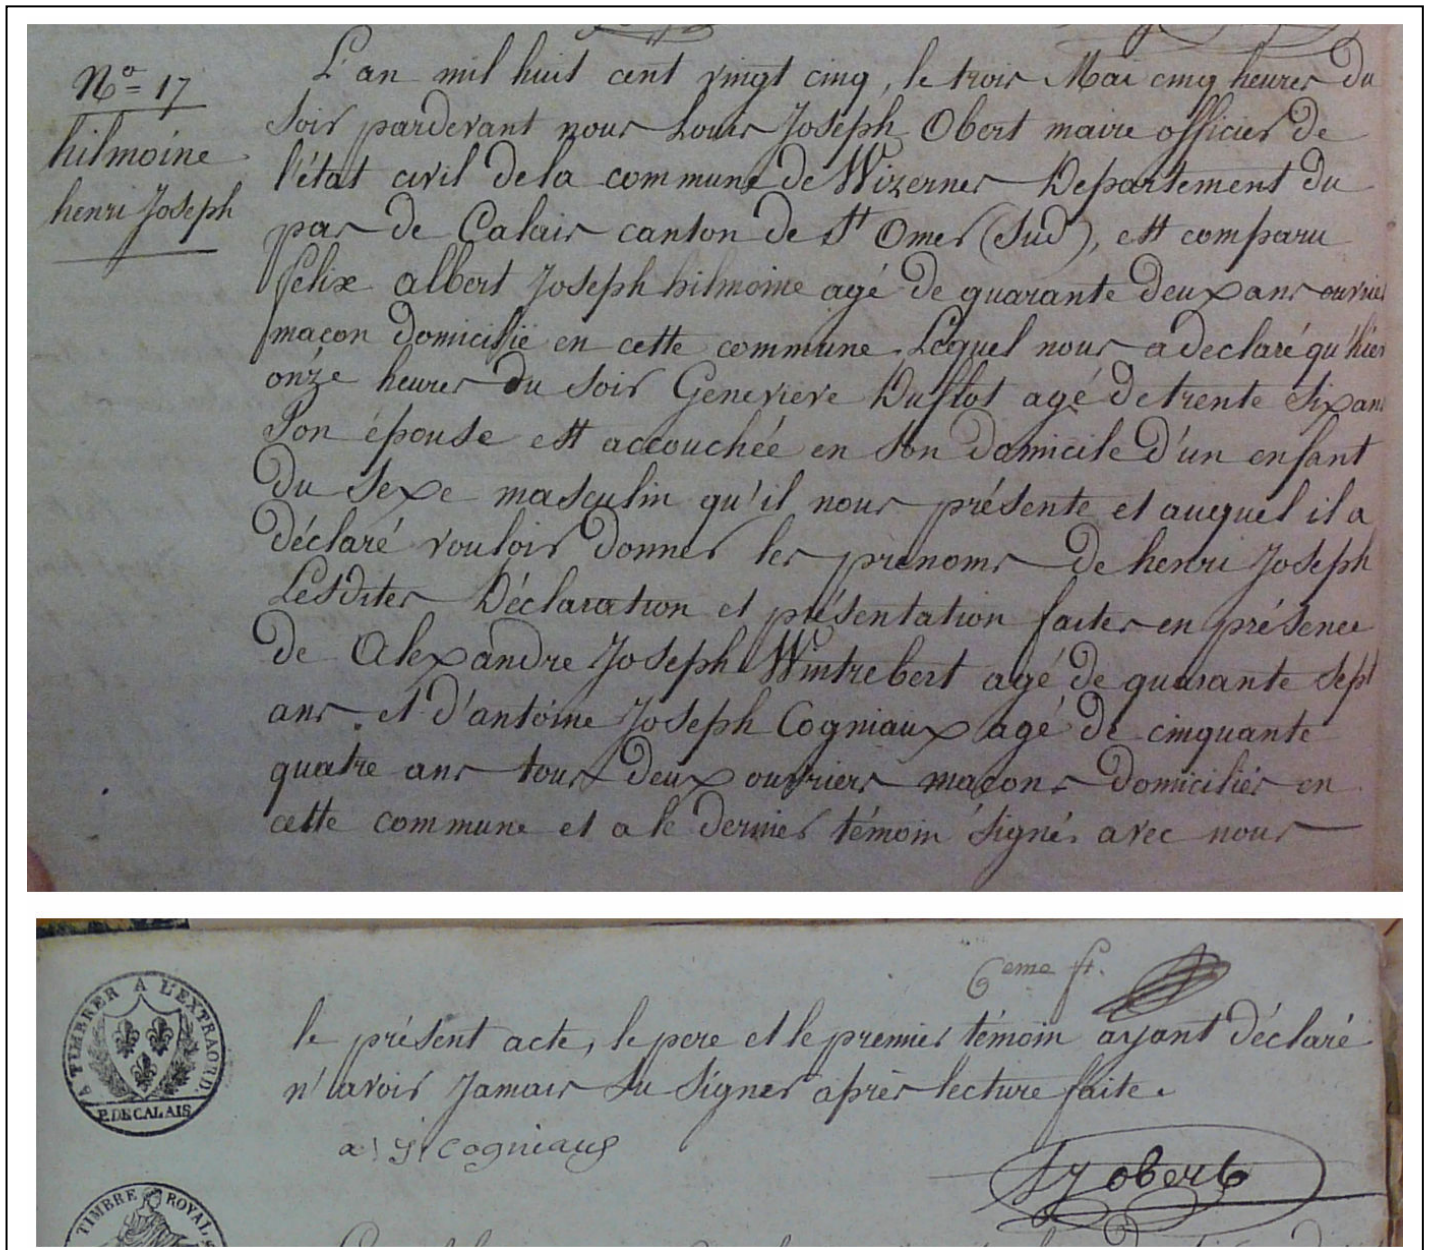 N.o 17
hilmoine
henri Joseph
L'an mil huit cent vingt cinq, le trois Mai cinq heures du
Soir pardevant nous Louis Joseph Obert maire officier de
l'état civil de la commune de Wizernes Departement du
pas de Calais canton de St Omer (Sud), est comparu
felix albert Joseph hilmoine agé de quarante deux ans ouvrier
maçon domicilié en cette commune. Lequel nous a declaré qu'hier
onze heures du Soir Genevieve Duflot agé de trente Six ans
Son épouse est accouchée en Son domicile d'un enfant
du Sexe masculin qu'il nous présente et auquel il a
déclaré vouloir donner les prenoms de henri Joseph
Lesdites Déclaration et présentation faites en présence
de Alexandre Joseph Wintrebert agé de quarante Sept
ans et d'antoine Joseph Cogniaux agé de cinquante
quatre ans tous deux ouvriers maçons domiciliés en
cette commune et a le dernier témoin Signé avec nous
6eme ft.
A TIMBRER A L'EXTRAORD.
P. DE CALAIS
le présent acte, le pere et le premier témoin ayant Déclaré
n'avoir Jamais Su Signer après lecture faite.
a j cogniaux
LJ obert
TIMBRE ROYAL